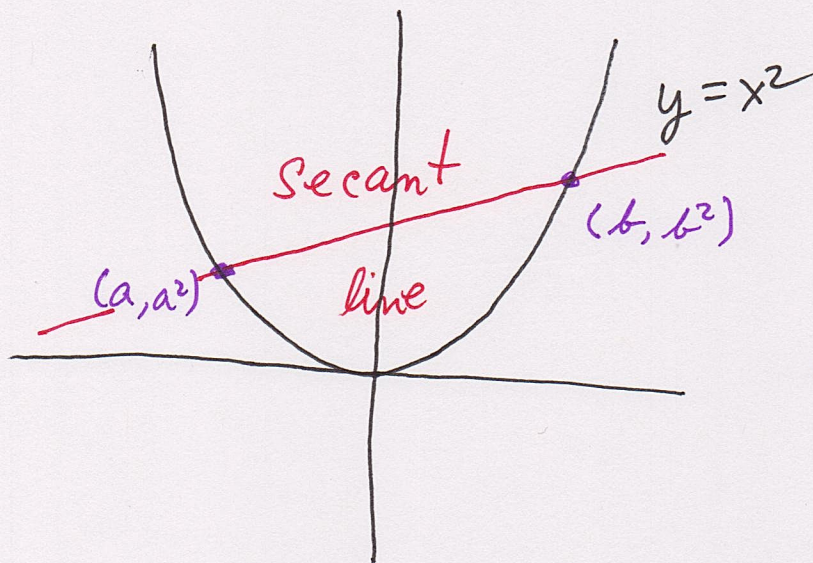 y = x²
secant
(b, b²)
(a, a²)
line